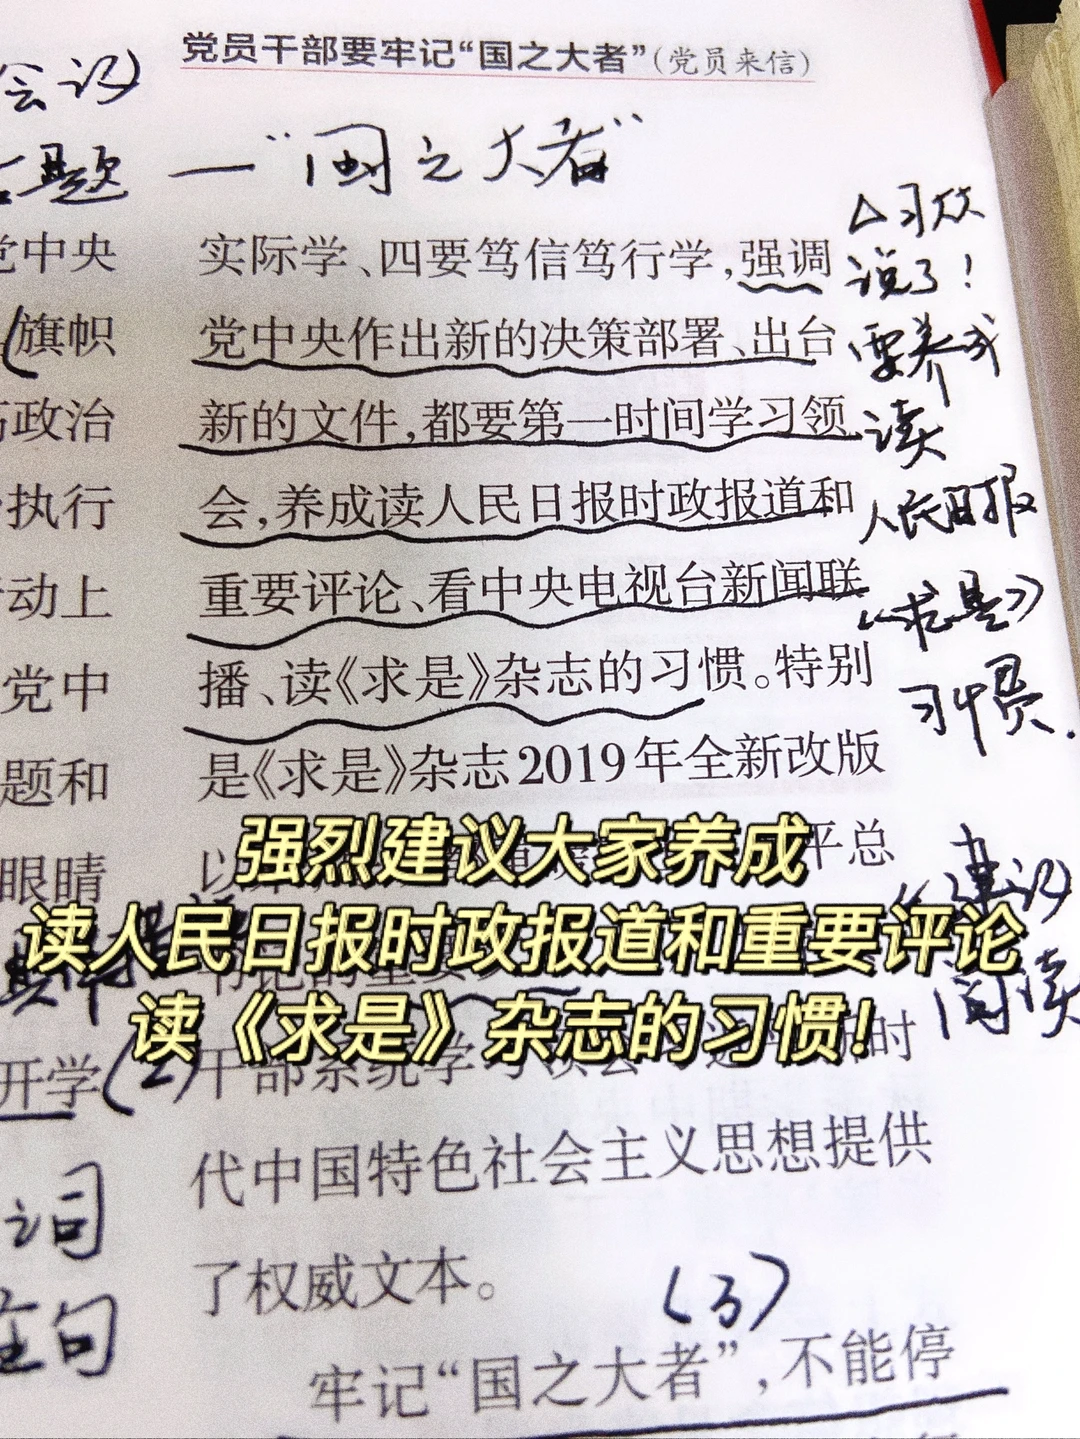 党员干部要牢记“国之大者”(党员来信)
会议
主题
一“国之大者”
党中央
旗帜
政治
执行
动上
党中
题和
眼睛
开学(2)
词
金句
实际学、四要笃信笃行学,强调
党中央作出新的决策部署、出台
新的文件,都要第一时间学习领
会,养成读人民日报时政报道和
重要评论、看中央电视台新闻联
播、读《求是》杂志的习惯。特别
是《求是》杂志2019年全新改版
平总
时
代中国特色社会主义思想提供
了权威文本。
(3)
牢记“国之大者”,不能停
△习大大
说了!
要养成
读
人民日报
《求是》
习惯.
建议
阅读
强烈建议大家养成
读人民日报时政报道和重要评论
读《求是》杂志的习惯!